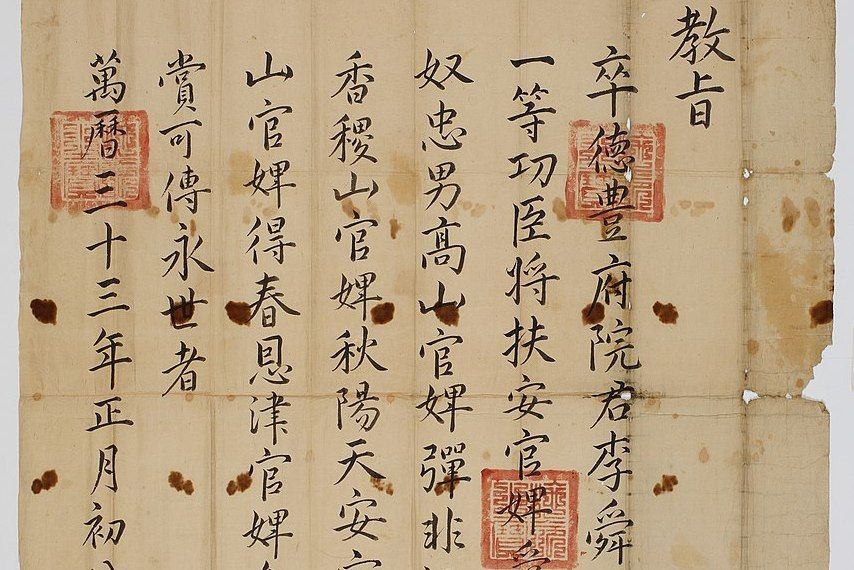 教旨
卒德豊府院君李舜
一等功臣将扶安官婢
奴忠男高山官婢彈非
香稷山官婢秋陽天安
山官婢得春恩津官婢
賞可傳永世者
萬曆三十三年正月初